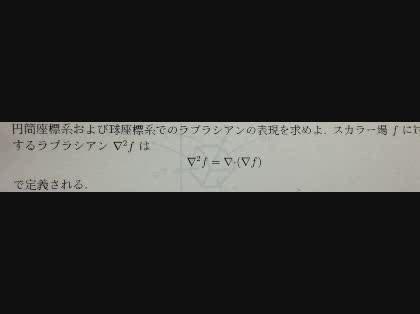 円筒座標系および球座標系でのラプラシアンの表現を求めよ. スカラー場 f に対
するラプラシアン ∇²f は
∇²f = ∇·(∇f)
で定義される.